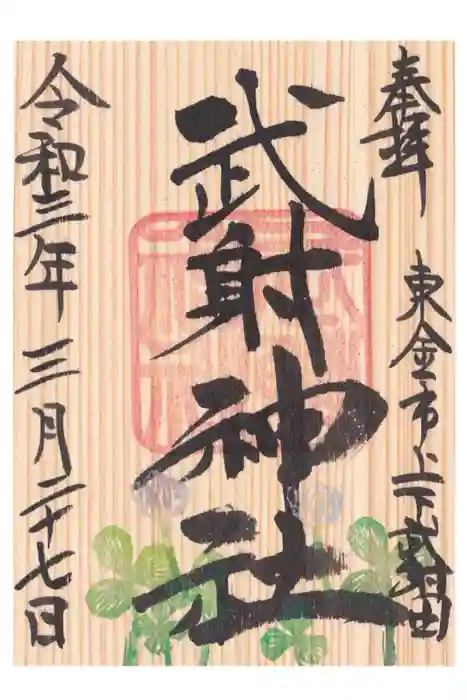 奉拝 東金市上下武射田
武射神社
令和三年 三月二十七日